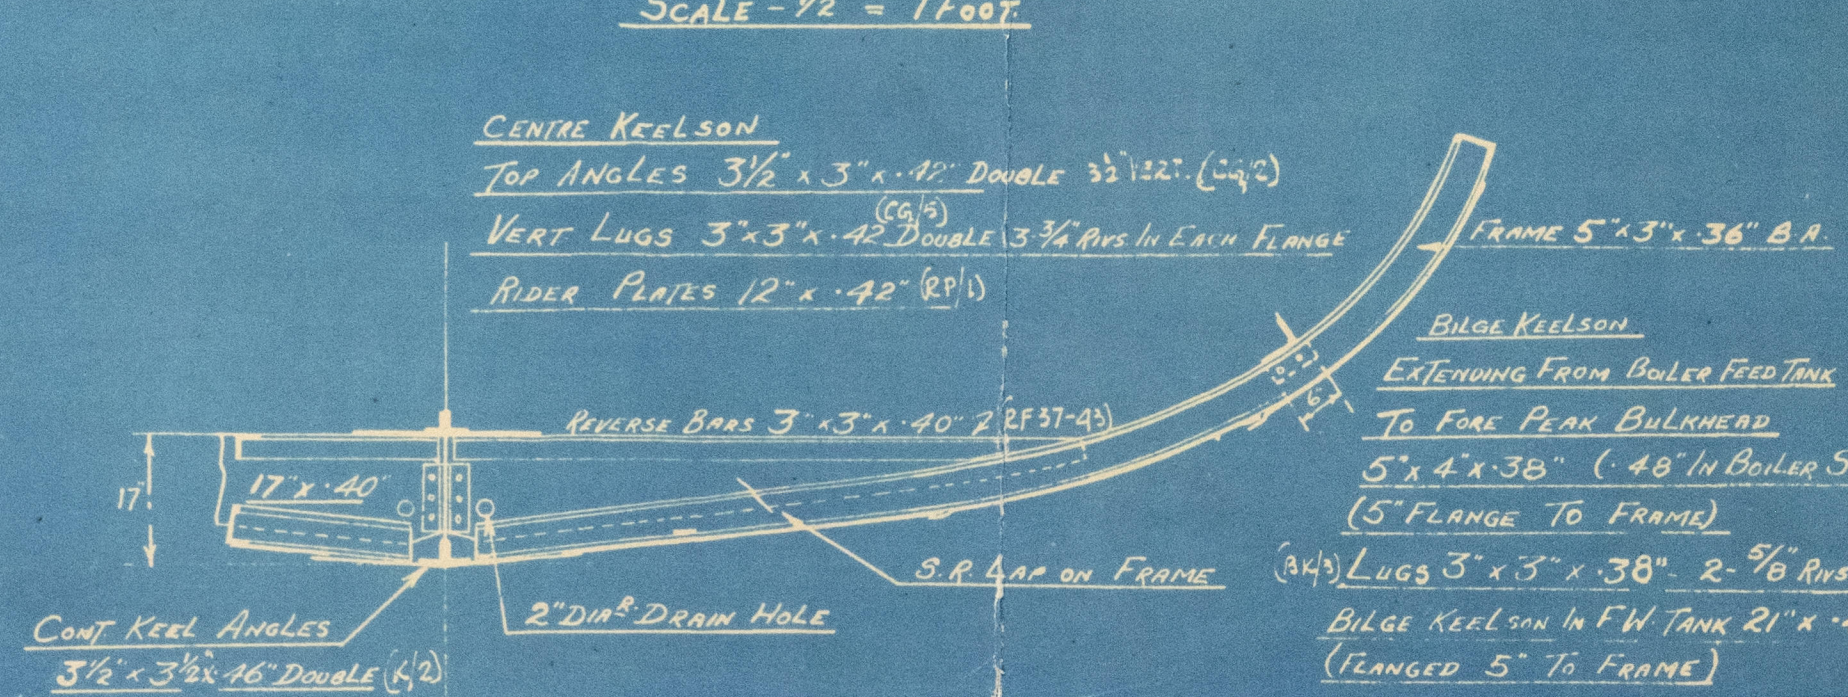 SCALE - 1/2" = 1 FOOT.
CENTRE KEELSON
TOP ANGLES 3 1/2" x 3" x .42" DOUBLE 3 1/2" VERT. (CG/2)
(CG/5)
VERT LUGS 3" x 3" x .42 DOUBLE 3-3/4" RIVS IN EACH FLANGE
RIDER PLATES 12" x .42" (RP/1)
FRAME 5" x 3" x .36" B.A.
BILGE KEELSON
EXTENDING FROM BOILER FEED TANK
TO FORE PEAK BULKHEAD
5" x 4" x .38" (.48" IN BOILER
(5" FLANGE TO FRAME)
(BK/3) LUGS 3" x 3" x .38" - 2-5/8" RIVS
BILGE KEELSON IN F.W. TANK 21" x
(FLANGED 5" TO FRAME)
6"
REVERSE BARS 3" x 3" x .40" (RF 37-43)
17"
17" x .40"
S.R. LAP ON FRAME
2" DIAR. DRAIN HOLE
CONT KEEL ANGLES
3 1/2" x 3 1/2" x .46" DOUBLE (K/2)